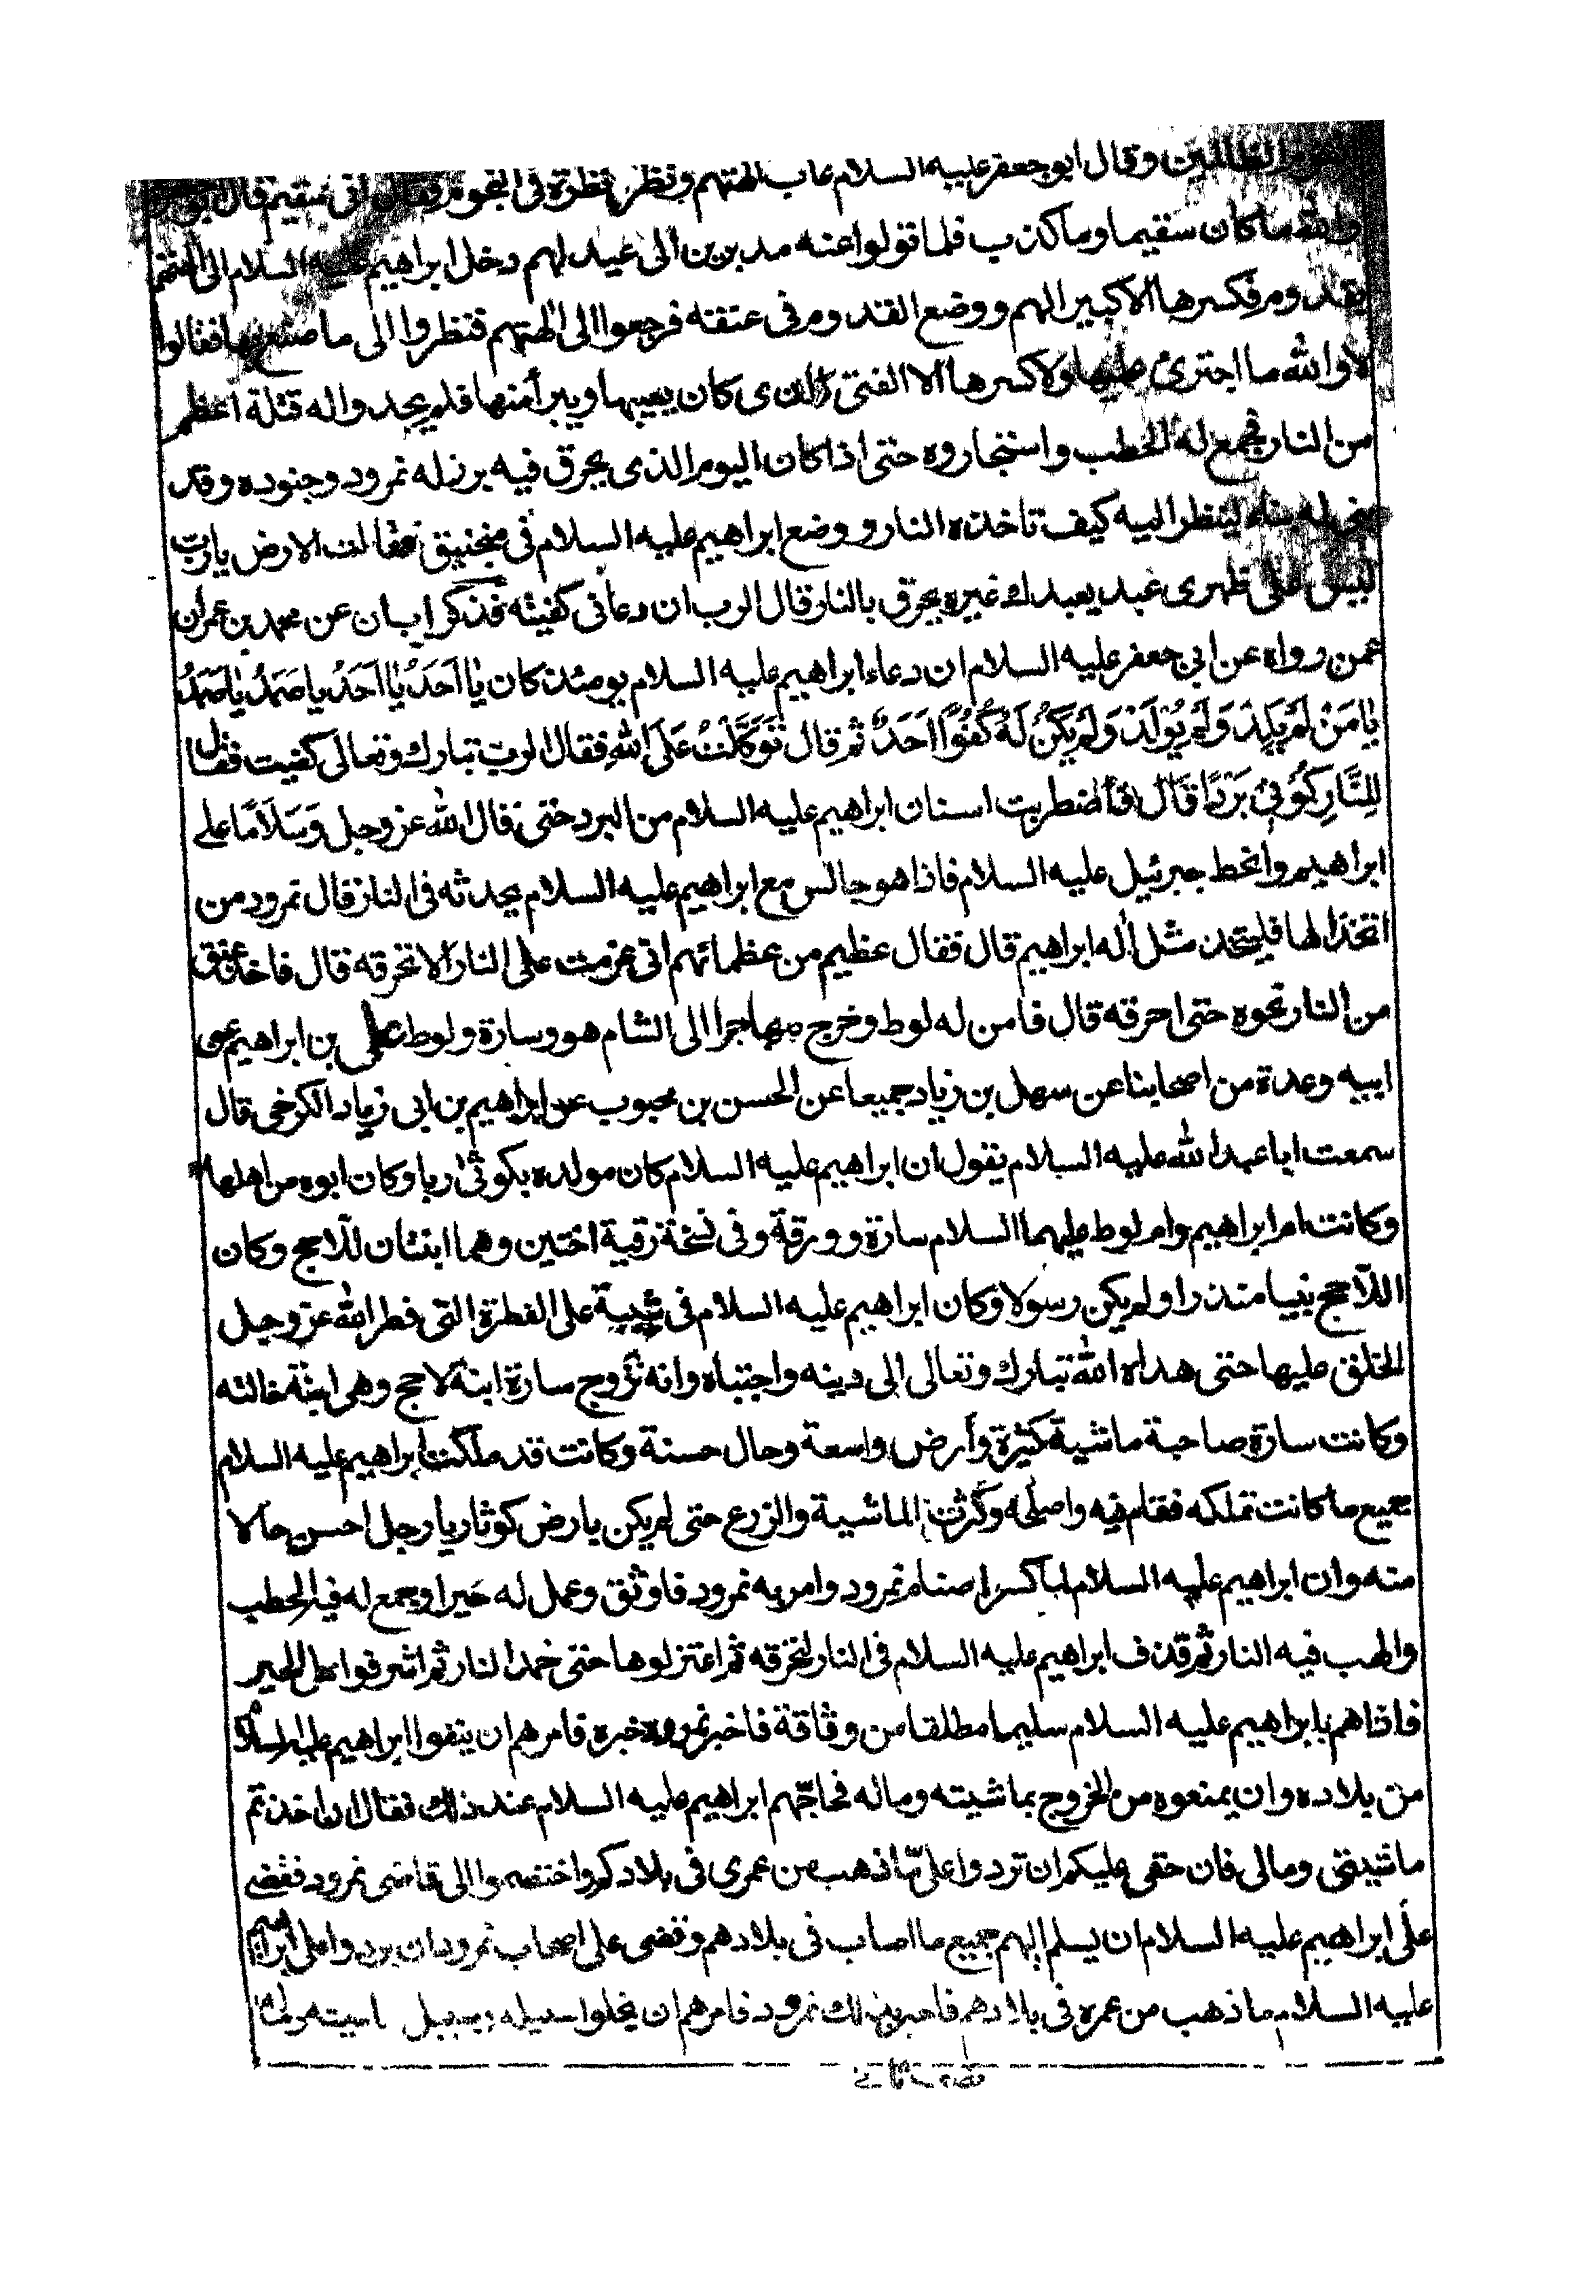 الظالمين وقال ابو جعفر عليه السلام عاب الهتهم ونظر نظرة فى النجوم فقال انى سقيم قال ابو جعفر
والله ما كان سقيما وما كذب فلما تولوا عنه مدبرين الى عيد لهم دخل ابراهيم عليه السلام الى الهتهم
بقدوم فكسرها الا كبيرا لهم ووضع القدوم فى عنقه فرجعوا الى الهتهم فنظروا الى ما صنع بها فقالوا
لا والله ما اجترئ عليها ولا كسرها الا الفتى الذى كان يعيبها ويبرأ منها فلم يجدوا له قتلة اعظم
من النار فجمع له الحطب واستجاروه حتى اذا كان اليوم الذى يحرق فيه برز له نمرود وجنوده وقد
بنى له بناء لينظر اليه كيف تاخذه النار ووضع ابراهيم عليه السلام فى منجنيق فقالت الارض يا رب
ليس على ظهرى عبد يعبدك غيره يحرق بالنار قال الرب ان دعانى كفيته فذكر ابان عن محمد بن عمران
عمن رواه عن ابى جعفر عليه السلام ان دعاء ابراهيم عليه السلام يومئذ كان يا اَحَدُ يا اَحَدُ يا صَمَدُ يا صَمَدُ
يا مَنْ لَمْ يَلِدْ وَلَمْ يُولَدْ وَلَمْ يَكُنْ لَهُ كُفُوًا اَحَدٌ ثم قال تَوَكَّلْتُ عَلَى اللهِ فقال الرب تبارك وتعالى كفيت فقال
لِلنَّارِ كُونِي بَرْدًا قَالَ فاضطربت اسنان ابراهيم عليه السلام من البرد حتى قال الله عز وجل وَسَلَامًا على
ابراهيم وانحط جبرئيل عليه السلام فاذا هو جالس مع ابراهيم عليه السلام يحدثه فى النار قال نمرود من
اتخذ الها فليتخذ مثل اله ابراهيم قال فقال عظيم من عظمائهم انى عزمت على النار الا تحرقه قال فاخذ عنق
من النار نحوه حتى احرقه قال فامن له لوط وخرج مهاجرا الى الشام هو وسارة ولوط على بن ابراهيم عن
ابيه وعدة من اصحابنا عن سهل بن زياد جميعا عن الحسن بن محبوب عن ابراهيم بن ابى زياد الكرخى قال
سمعت ابا عبد الله عليه السلام يقول ان ابراهيم عليه السلام كان مولده بكوثى ربا وكان ابوه من اهلها
وكانت ام ابراهيم وام لوط عليهما السلام سارة وورقة وفى نسخة رقية اختين وهما ابنتان للاحج وكان
اللاحج نبيا منذرا ولم يكن رسولا وكان ابراهيم عليه السلام فى شبيبة على الفطرة التى فطر الله عز وجل
الخلق عليها حتى هداه الله تبارك وتعالى الى دينه واجتباه وانه تزوج سارة ابنة لاحج وهى ابنة خالته
وكانت سارة صاحبة ماشية كثيرة وأرض واسعة وحال حسنة وكانت قد ملكت ابراهيم عليه السلام
جميع ما كانت تملكه فقام فيه واصلحه وكثرت الماشية والزرع حتى لم يكن بارض كوثا ربا رجل احسن حالا
منه وان ابراهيم عليه السلام لما كسر اصنام نمرود وامر به نمرود فاوثق وعمل له حيرا وجمع له فيه الحطب
والهب فيه النار ثم قذف ابراهيم عليه السلام فى النار لتحرقه ثم اعتزلوها حتى خمد النار ثم اشرفوا على الحير
فاذا هم بابراهيم عليه السلام سليما مطلقا من وثاقة فاخبر نمرود خبره فامرهم ان ينفوا ابراهيم عليه السلام
من بلاده وان يمنعوه من الخروج بماشيته وماله فحاجّهم ابراهيم عليه السلام عند ذلك فقال ان اخذتم
ماشيتى ومالى فان حقى عليكم ان تردوا علىّ ما ذهب من عمرى فى بلادكم واختصموا الى قاضى نمرود فقضى
على ابراهيم عليه السلام ان يسلم اليهم جميع ما اصاب فى بلادهم وقضى على اصحاب نمرود ان يردوا على ابراهيم
عليه السلام ما ذهب من عمره فى بلادهم فاخبر بذلك نمرود فامرهم ان يخلوا سبيله وسبيل ماشيته وماله